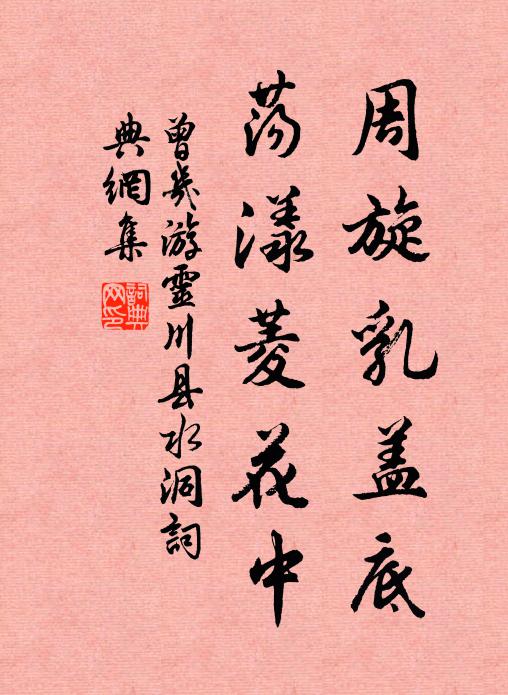 周旋乳盖底
荡漾菱花中
曾几游靈川县水洞詞
典網集
詞典網印